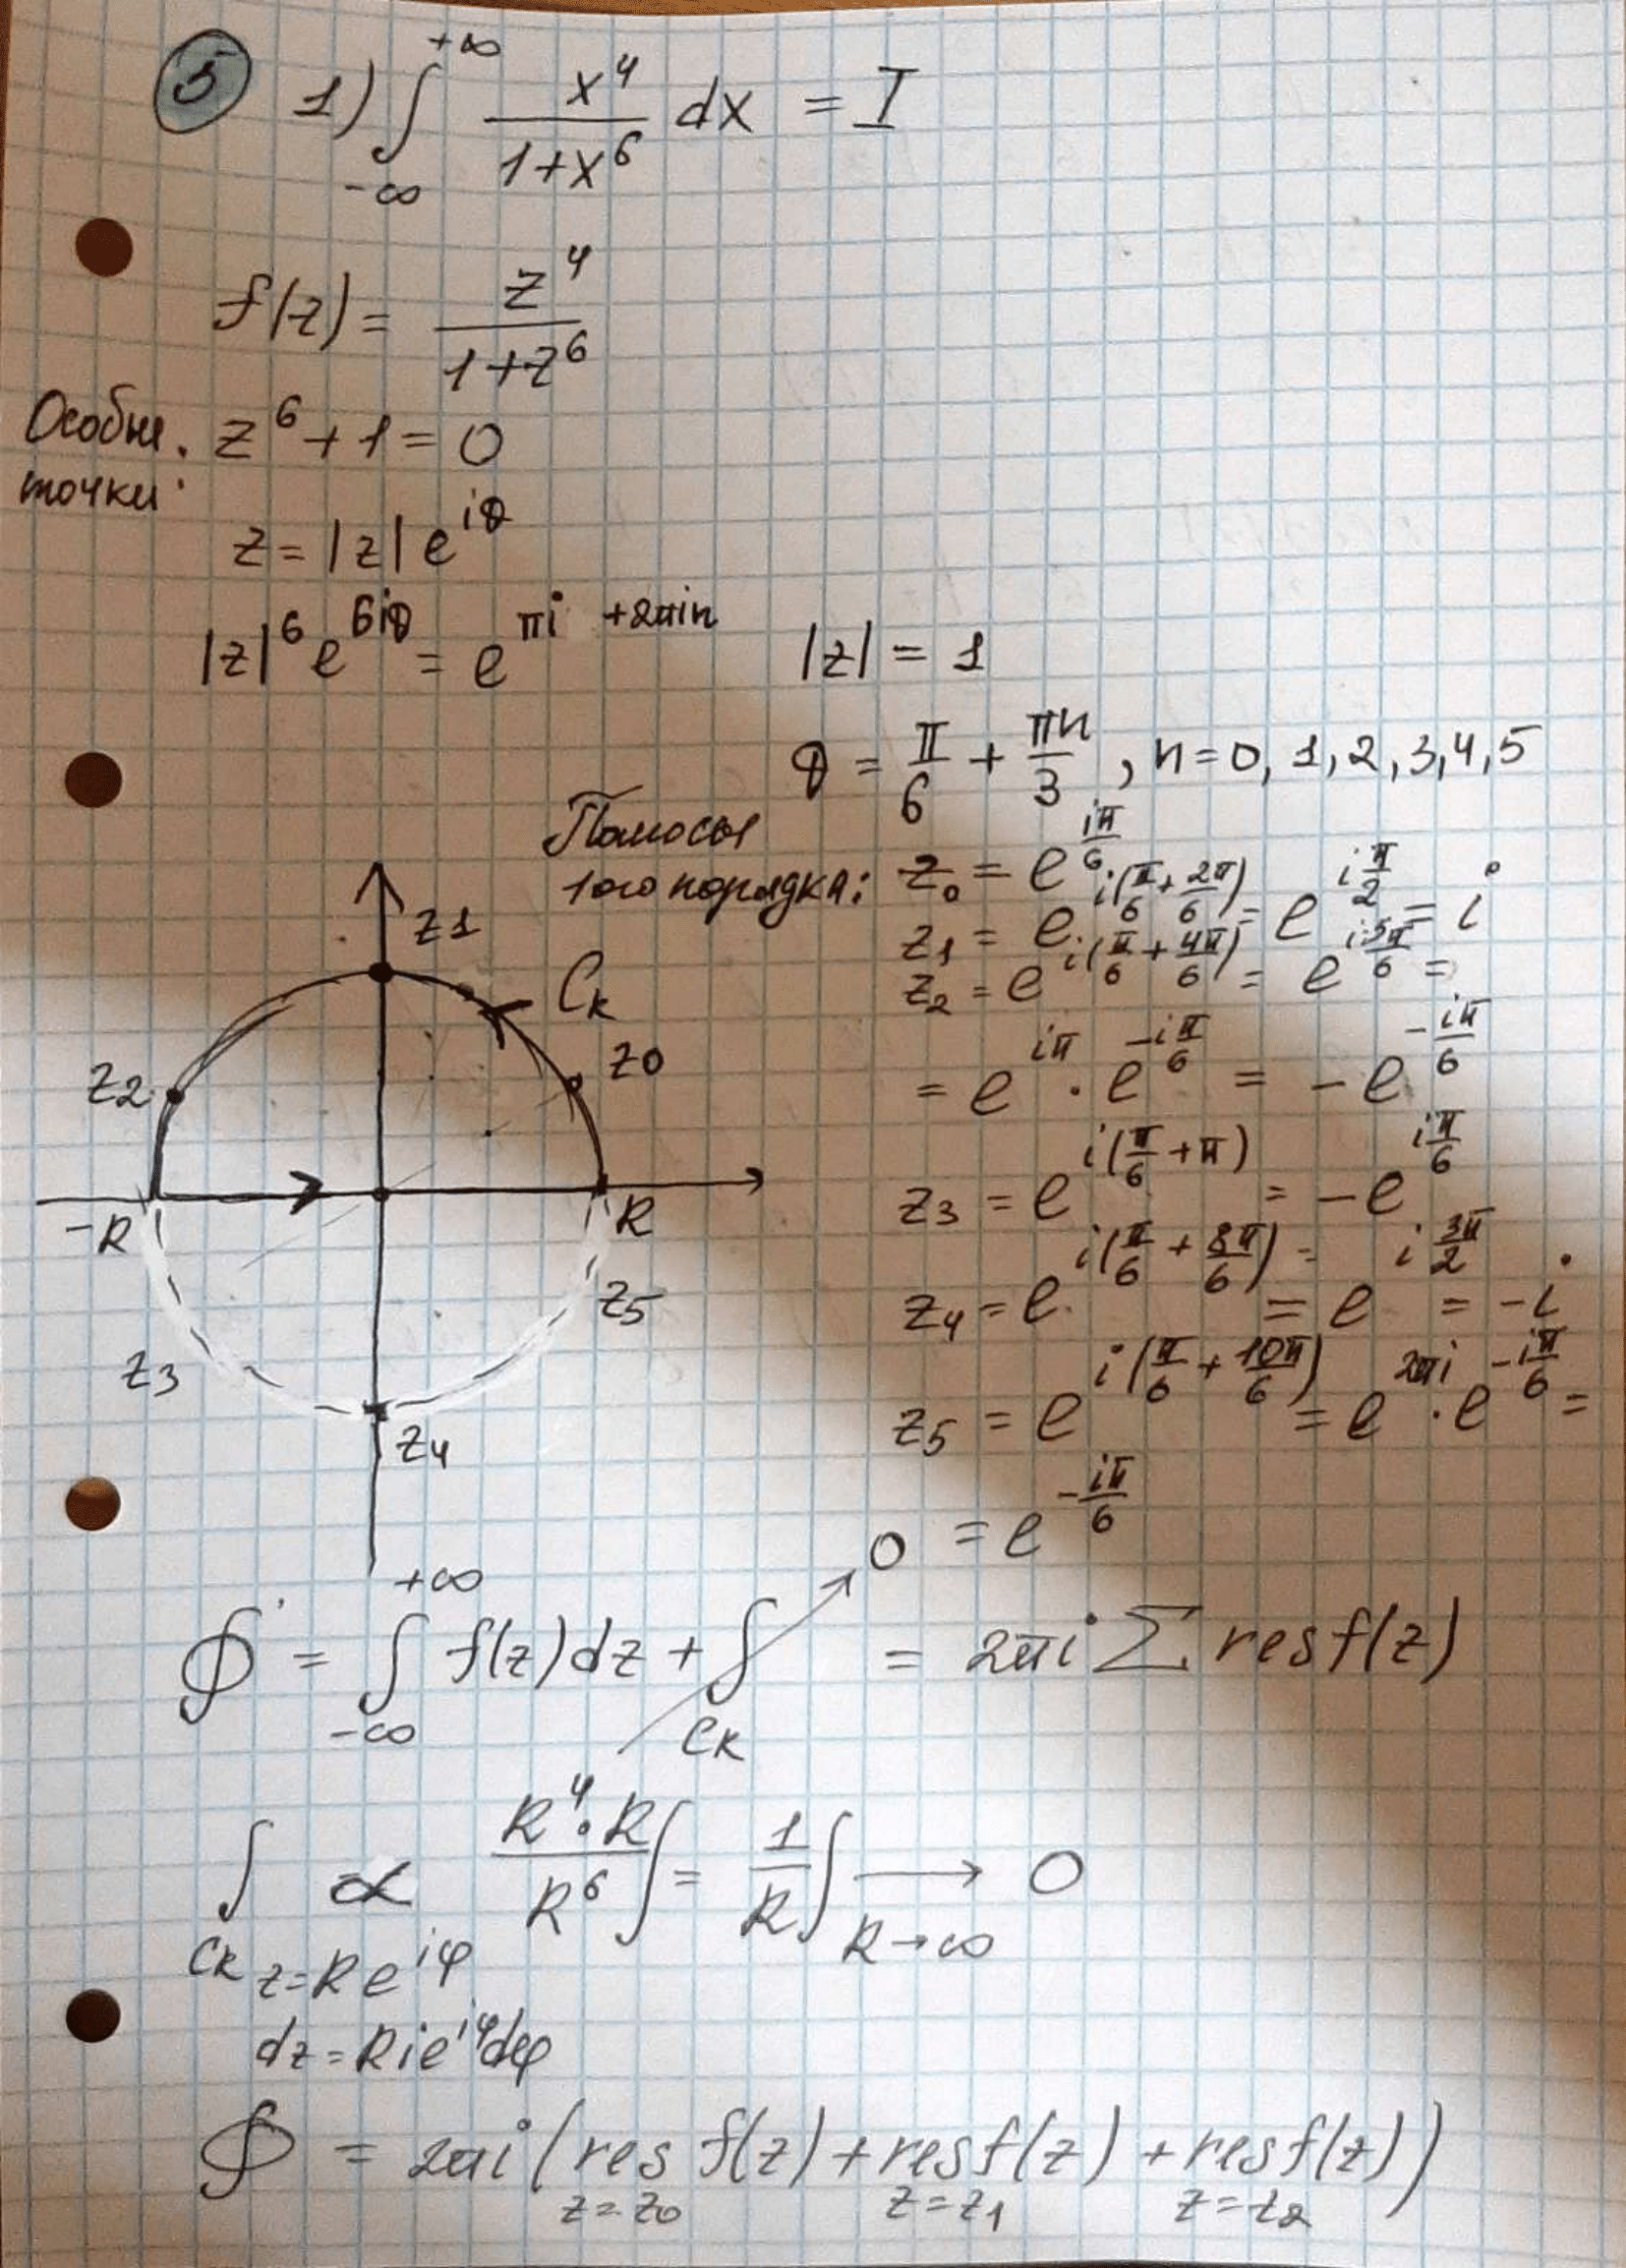 5 1) ∫_{-∞}^{+∞} x^4/(1+x^6) dx = I
f(z) = z^4/(1+z^6)
Особые точки: z^6 + 1 = 0
z = |z| e^{iθ}
|z|^6 e^{6iθ} = e^{πi + 2πin} |z| = 1
θ = π/6 + πn/3, n = 0, 1, 2, 3, 4, 5
Полюсы
1ого порядка: z_0 = e^{iπ/6}
z_1 = e^{i(π/6 + 2π/6)} = e^{iπ/2} = i
z_2 = e^{i(π/6 + 4π/6)} = e^{i5π/6} =
= e^{iπ} · e^{-iπ/6} = - e^{-iπ/6}
z_3 = e^{i(π/6 + π)} = - e^{iπ/6}
z_4 = e^{i(π/6 + 8π/6)} = e^{i3π/2} = -i
z_5 = e^{i(π/6 + 10π/6)} = e^{2πi} · e^{-iπ/6} =
= e^{-iπ/6}
z1
C_R
z0
z2
-R
R
z5
z3
z4
∮ = ∫_{-∞}^{+∞} f(z)dz + ∫_{C_R} → 0 = 2πi Σ res f(z)
∫_{C_R} ∝ (R^4 · R)/R^6 ∫ = 1/R ∫ →_{R→∞} 0
z = Re^{iφ}
dz = Rie^{iφ}dφ
∮ = 2πi (res_{z=z_0} f(z) + res_{z=z_1} f(z) + res_{z=z_2} f(z))